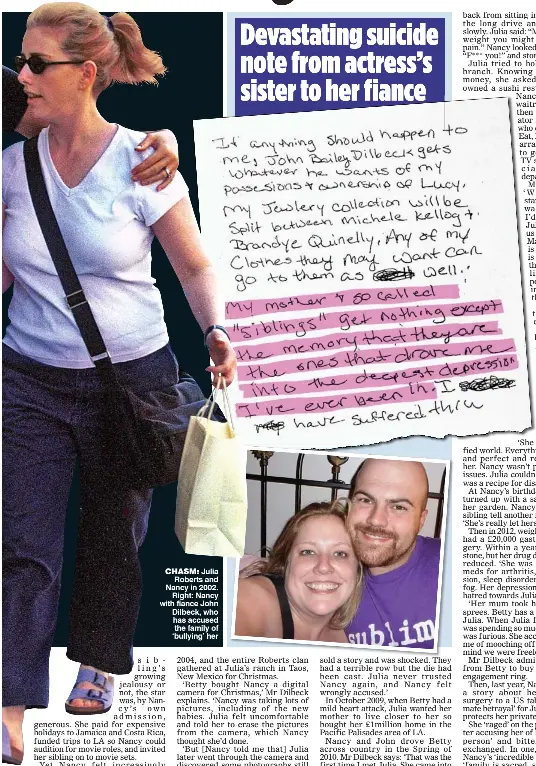 Devastating suicide
note from actress's
sister to her fiance
If anything should happen to
me, John Bailey Dilbeck gets
whatever he wants of my
possesions + ownership of Lucy.
My Jewlery collection will be
Split between Michele Kellog +
Brandye Quinelly, Any of my
Clothes they may want can
go to them as well.
My mother + so called
"siblings" get nothing except
the memory that they are
the ones that drove me
into the deepest depression
I've ever been in. I
have suffered thru
CHASM: Julia
Roberts and
Nancy in 2002.
Right: Nancy
with fiance John
Dilbeck, who
has accused
the family of
'bullying' her
sublim
sib-
ling's
growing
jealousy or
not, the star
was, by Nan-
cy's own
admission,
generous. She paid for expensive
holidays to Jamaica and Costa Rica,
funded trips to LA so Nancy could
audition for movie roles, and invited
her sibling on to movie sets.
Yet Nancy felt increasingly
2004, and the entire Roberts clan
gathered at Julia's ranch in Taos,
New Mexico for Christmas.
'Betty bought Nancy a digital
camera for Christmas,' Mr Dilbeck
explains. 'Nancy was taking lots of
pictures, including of the new
babies. Julia felt uncomfortable
and told her to erase the pictures
from the camera, which Nancy
thought she'd done.
'But [Nancy told me that] Julia
later went through the camera and
discovered some photographs still
sold a story and was shocked. They
had a terrible row but the die had
been cast. Julia never trusted
Nancy again, and Nancy felt
wrongly accused.'
In October 2009, when Betty had a
mild heart attack, Julia wanted her
mother to live closer to her so
bought her £1million home in the
Pacific Palisades area of LA.
Nancy and John drove Betty
across country in the Spring of
2010. Mr Dilbeck says: 'That was the
first time I met Julia. She came into
back from sitting in
the long drive an
slowly. Julia said: "M
weight you might
pain." Nancy looked
"F*** you!" and stor
Julia tried to hol
branch. Knowing
money, she asked
owned a sushi rest
Nanc
waitr
then
ator
who
Eat,
arra
to g
TV s
cia
depa
M
'W
star
wa
I'd
Jul
us
Ma
is
is
th
li
p
in
th
'She
fied world. Everyth
and perfect and re
her. Nancy wasn't p
issues. Julia couldn
was a recipe for dis
At Nancy's birthda
turned up with a sa
her garden. Nancy
sibling tell another
'She's really let hers
Then in 2012, weigh
had a £20,000 gast
gery. Within a year
stone, but her drug d
reduced. 'She was
meds for arthritis,
sion, sleep disorder
fog. Her depression
hatred towards Julia
'Her mum took h
sprees. Betty has a
Julia. When Julia f
was spending so mu
was furious. She acc
me of mooching off
mind we were freeb
Mr Dilbeck admi
from Betty to buy
engagement ring.
Then, last year, Na
a story about he
surgery to a US tal
mate betrayal' for Ju
protects her private
She 'raged' on the
ter accusing her of
person' and bitte
exchanged. In one,
Nancy's 'incredible
'family is sacred, s